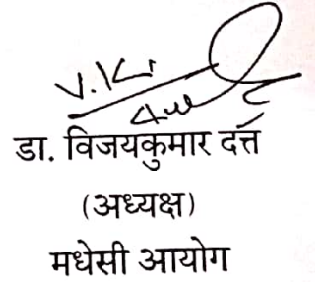 डा. विजयकुमार दत्त
(अध्यक्ष)
मधेसी आयोग